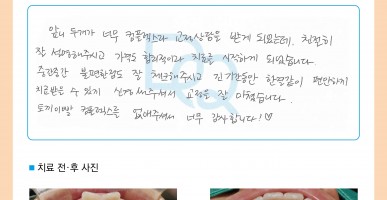 앞니 두개가 너무 컴플렉스라 교정상담을 받게 되었는데, 친절히
잘 설명해주시고 가격도 합리적이라 치료를 시작하게 되었습니다.
중간중간 불편한점도 잘 체크해주시고 긴 기간동안 한결같이 편안하게
치료받을 수 있게 신경써주셔서 교정을 잘 마쳤습니다.
토끼이빨 컴플렉스를 없애주셔서 너무 감사합니다!♡
■ 치료 전·후 사진